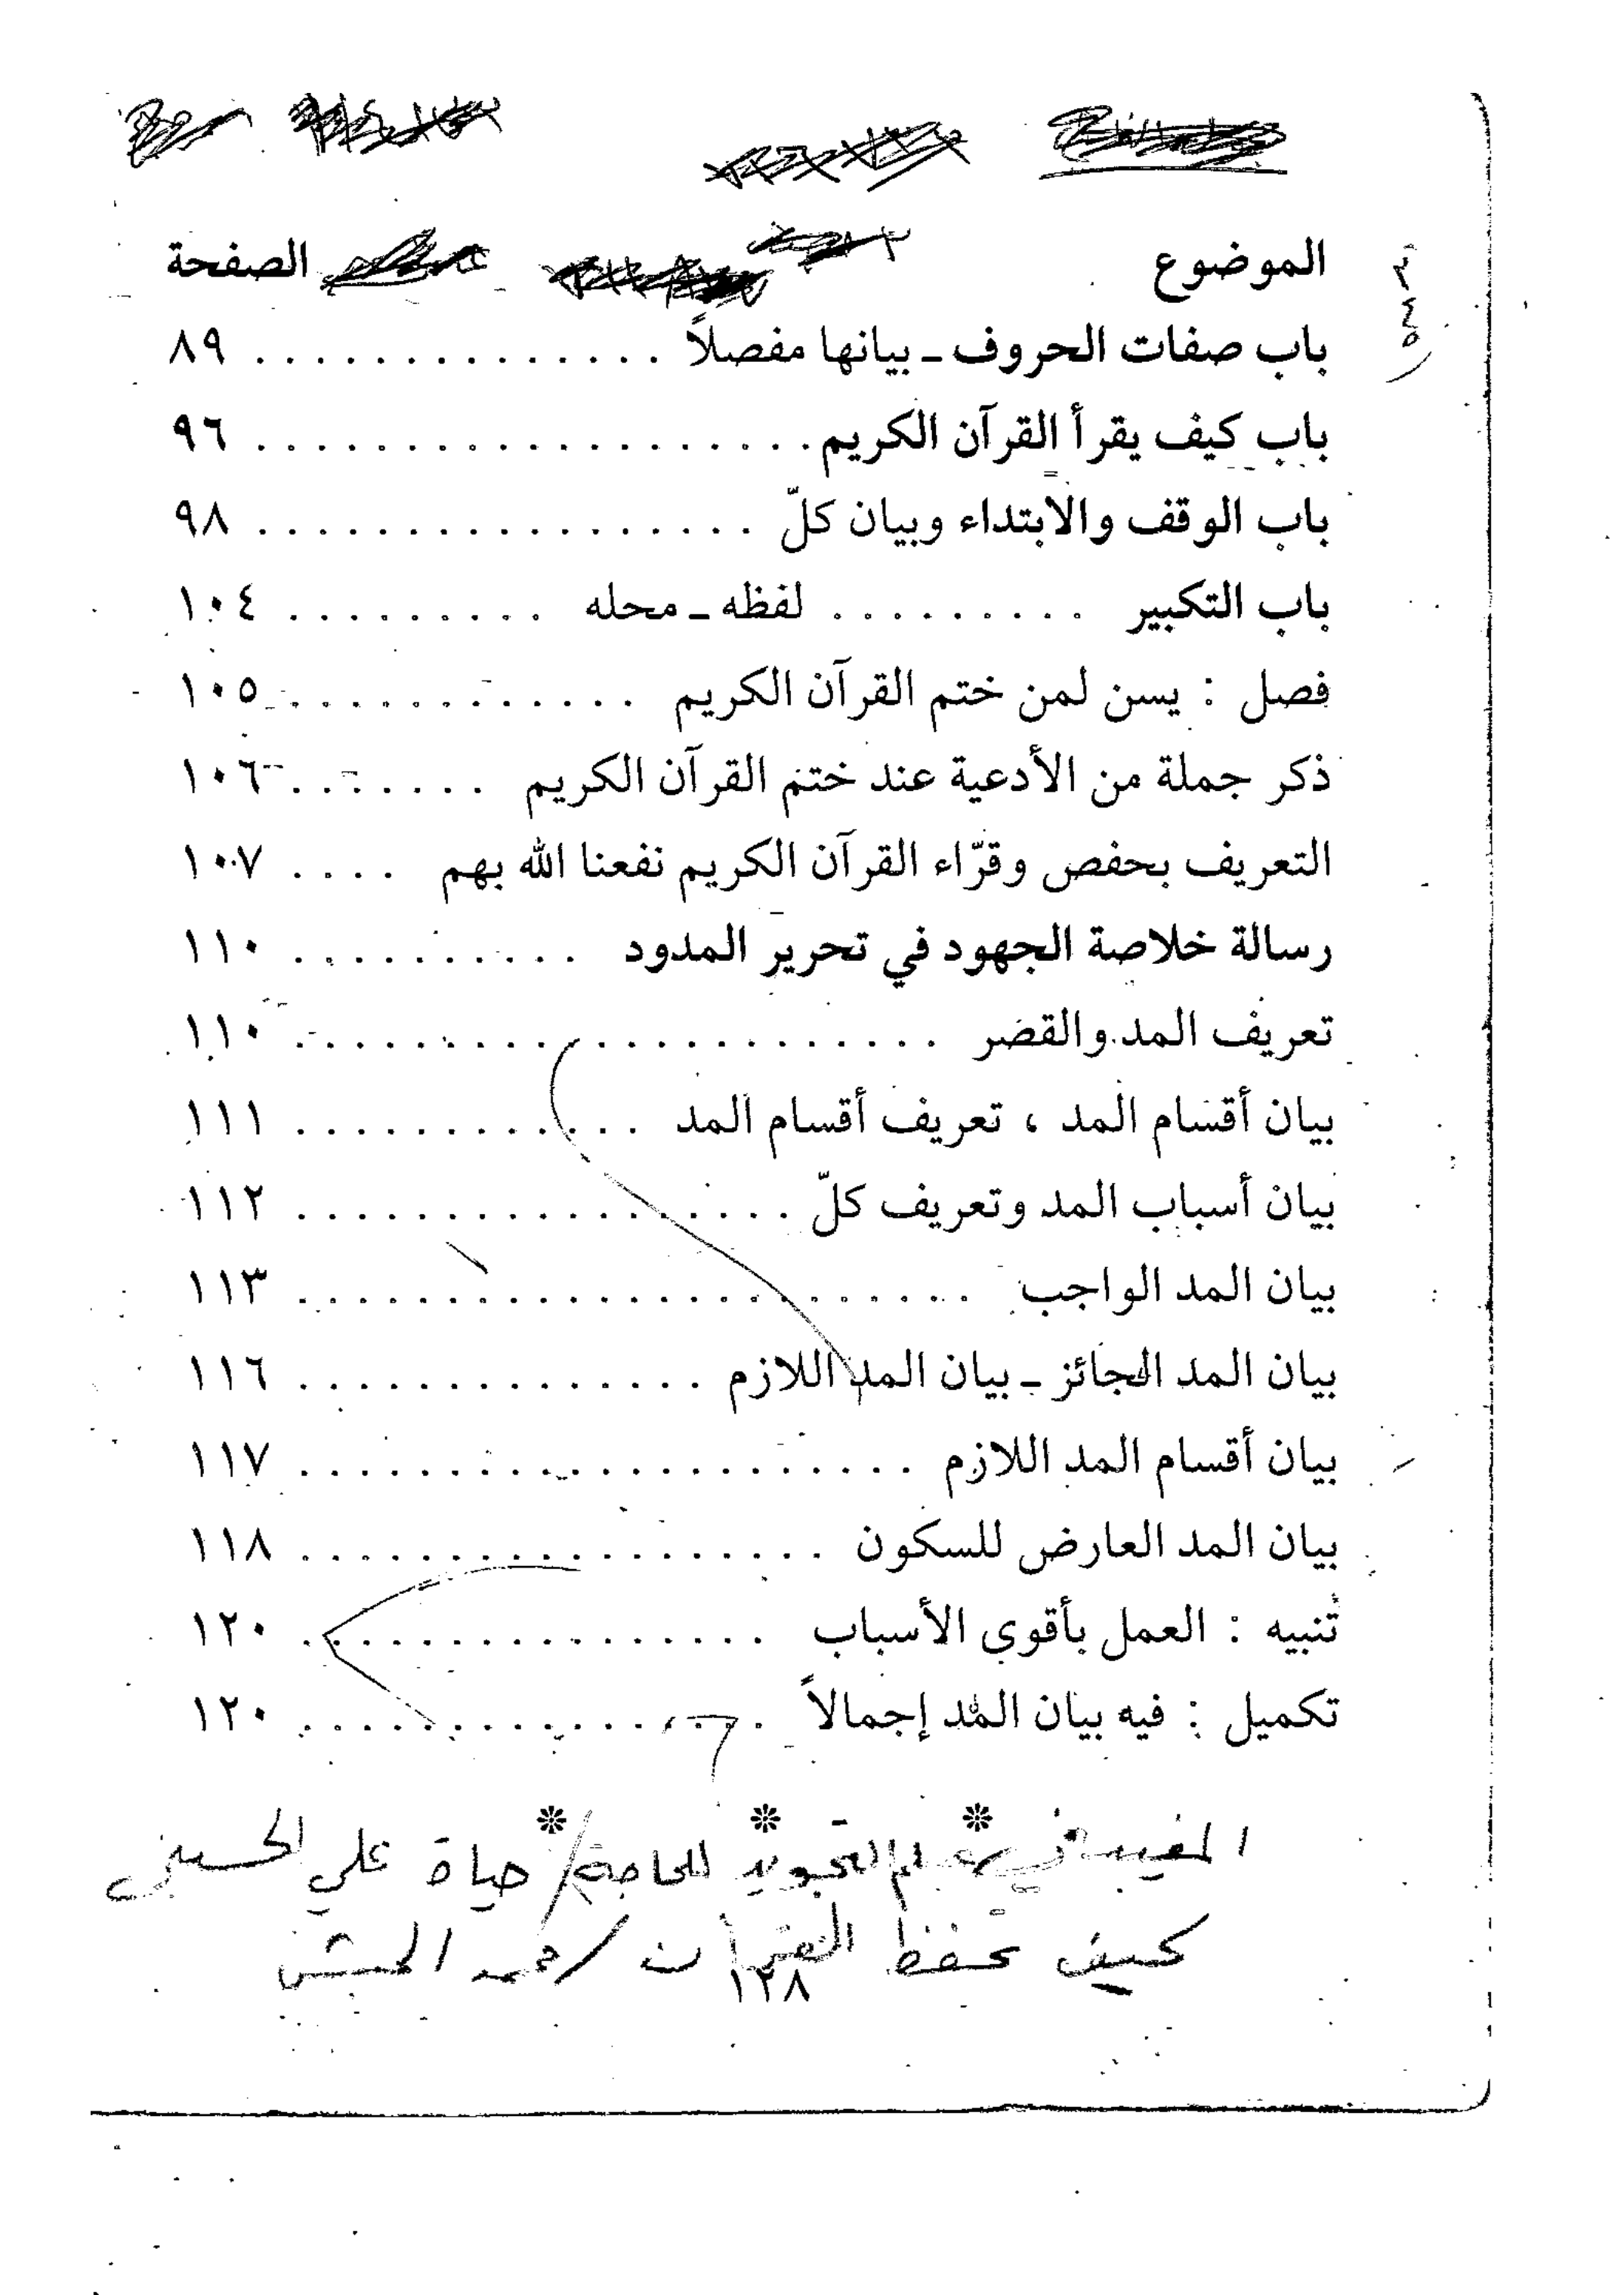 الموضوع الصفحة
باب صفات الحروف ـ بيانها مفصلاً . . . . . . . . . . . . . . ٨٩
باب كيف يقرأ القرآن الكريم . . . . . . . . . . . . . . . . . . . ٩٦
باب الوقف والابتداء وبيان كلّ . . . . . . . . . . . . . . . . . ٩٨
باب التكبير . . . . . . . . . لفظه ـ محله . . . . . . . . . ١٠٤
فصل : يسن لمن ختم القرآن الكريم . . . . . . . . . . . . ١٠٥
ذكر جملة من الأدعية عند ختم القرآن الكريم . . . . . . . ١٠٦
التعريف بحفص وقرّاء القرآن الكريم نفعنا الله بهم . . . . ١٠٧
رسالة خلاصة الجهود في تحرير المدود . . . . . . . . . . ١١٠
تعريف المد والقصر . . . . . . . . . . . . . . . . . . . . . . ١١٠
بيان أقسام المد ، تعريف أقسام المد . . . . . . . . . . . . ١١١
بيان أسباب المد وتعريف كلّ . . . . . . . . . . . . . . . . . ١١٢
بيان المد الواجب . . . . . . . . . . . . . . . . . . . . . . . ١١٣
بيان المد الجائز ـ بيان المد اللازم . . . . . . . . . . . . . . ١١٦
بيان أقسام المد اللازم . . . . . . . . . . . . . . . . . . . . . ١١٧
بيان المد العارض للسكون . . . . . . . . . . . . . . . . . . ١١٨
تنبيه : العمل بأقوى الأسباب . . . . . . . . . . . . . . . . ١٢٠
تكميل : فيه بيان المد إجمالاً . . . . . . . . . . . . . . . . ١٢٠
المفيد في علم التجويد للحاجة / حياة علي الحسيني
كيف تحفظ القرآن / محمد الحبش
١٢٨